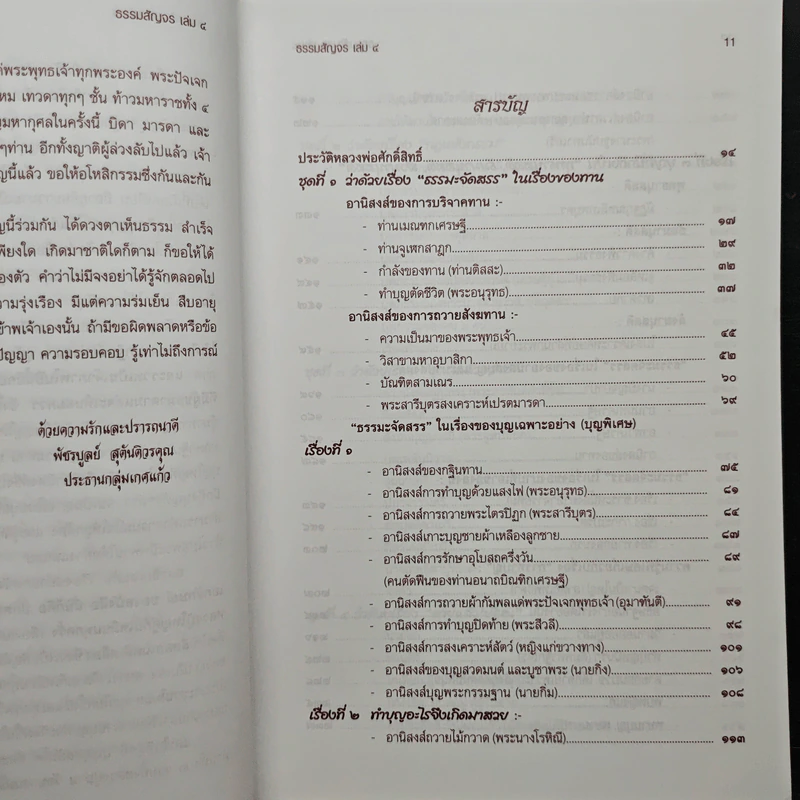 ธรรมสัญจร เล่ม ๔
พระพุทธเจ้าทุกพระองค์ พระปัจเจก
เทวดาทุกๆ ชั้น ท้าวมหาราชทั้ง ๔
มหากุศลในครั้งนี้ บิดา มารดา และ
ๆท่าน อีกทั้งญาติผู้ล่วงลับไปแล้ว เจ้า
นี้แล้ว ขอให้อโหสิกรรมซึ่งกันและกัน
นี้ร่วมกัน ได้ดวงตาเห็นธรรม สำเร็จ
เพียงใด เกิดมาชาติใดก็ตาม ก็ขอให้ได้
ของตัว คำว่าไม่มีจงอย่าได้รู้จักตลอดไป
ความรุ่งเรือง มีแต่ความร่มเย็น สืบอายุ
ข้าพเจ้าเองนั้น ถ้ามีขอผิดพลาดหรือข้อ
ปัญญา ความรอบคอบ รู้เท่าไม่ถึงการณ์
ด้วยความรักและปรารถนาดี
พัชรบูลย์ สุตันติวรคุณ
ประธานกลุ่มเกศแก้ว
ธรรมสัญจร เล่ม ๔ 11
สารบัญ
ประวัติหลวงพ่อศักดิ์สิทธิ์ ๑๔
ชุดที่ ๑ ว่าด้วยเรื่อง “ธรรมะจัดสรร” ในเรื่องของทาน
อานิสงส์ของการบริจาคทาน :-
- ท่านเมณฑกเศรษฐี ๑๗
- ท่านจูเฬกสาฎก ๒๙
- กำลังของทาน (ท่านติสสะ) ๓๒
- ทำบุญตัดชีวิต (พระอนุรุทธ) ๓๗
อานิสงส์ของการถวายสังฆทาน :-
- ความเป็นมาของพระพุทธเจ้า ๔๕
- วิสาขามหาอุบาสิกา ๕๒
- บัณฑิตสามเณร ๖๐
- พระสารีบุตรสงเคราะห์เปรตมารดา ๖๙
“ธรรมะจัดสรร” ในเรื่องของบุญเฉพาะอย่าง (บุญพิเศษ)
เรื่องที่ ๑
- อานิสงส์ของกฐินทาน ๗๕
- อานิสงส์การทำบุญด้วยแสงไฟ (พระอนุรุทธ) ๘๑
- อานิสงส์การถวายพระไตรปิฎก (พระสารีบุตร) ๘๔
- อานิสงส์เกาะบุญชายผ้าเหลืองลูกชาย ๘๗
- อานิสงส์การรักษาอุโบสถครึ่งวัน ๘๙
(คนตัดฟืนของท่านอนาถบิณฑิกเศรษฐี)
- อานิสงส์การถวายผ้ากัมพลแด่พระปัจเจกพุทธเจ้า (อุมาทันตี) ๙๑
- อานิสงส์การทำบุญปิดท้าย (พระสีวลี) ๙๘
- อานิสงส์การสงเคราะห์สัตว์ (หญิงแก่ขวางทาง) ๑๐๑
- อานิสงส์ของบุญสวดมนต์ และบูชาพระ (นายกิ่ง) ๑๐๖
- อานิสงส์บุญพระกรรมฐาน (นายกิ่ม) ๑๐๘
เรื่องที่ ๒ ทำบุญอะไรจึงเกิดมาสวย :-
- อานิสงส์ถวายไม้กวาด (พระนางโรหิณี) ๑๑๓